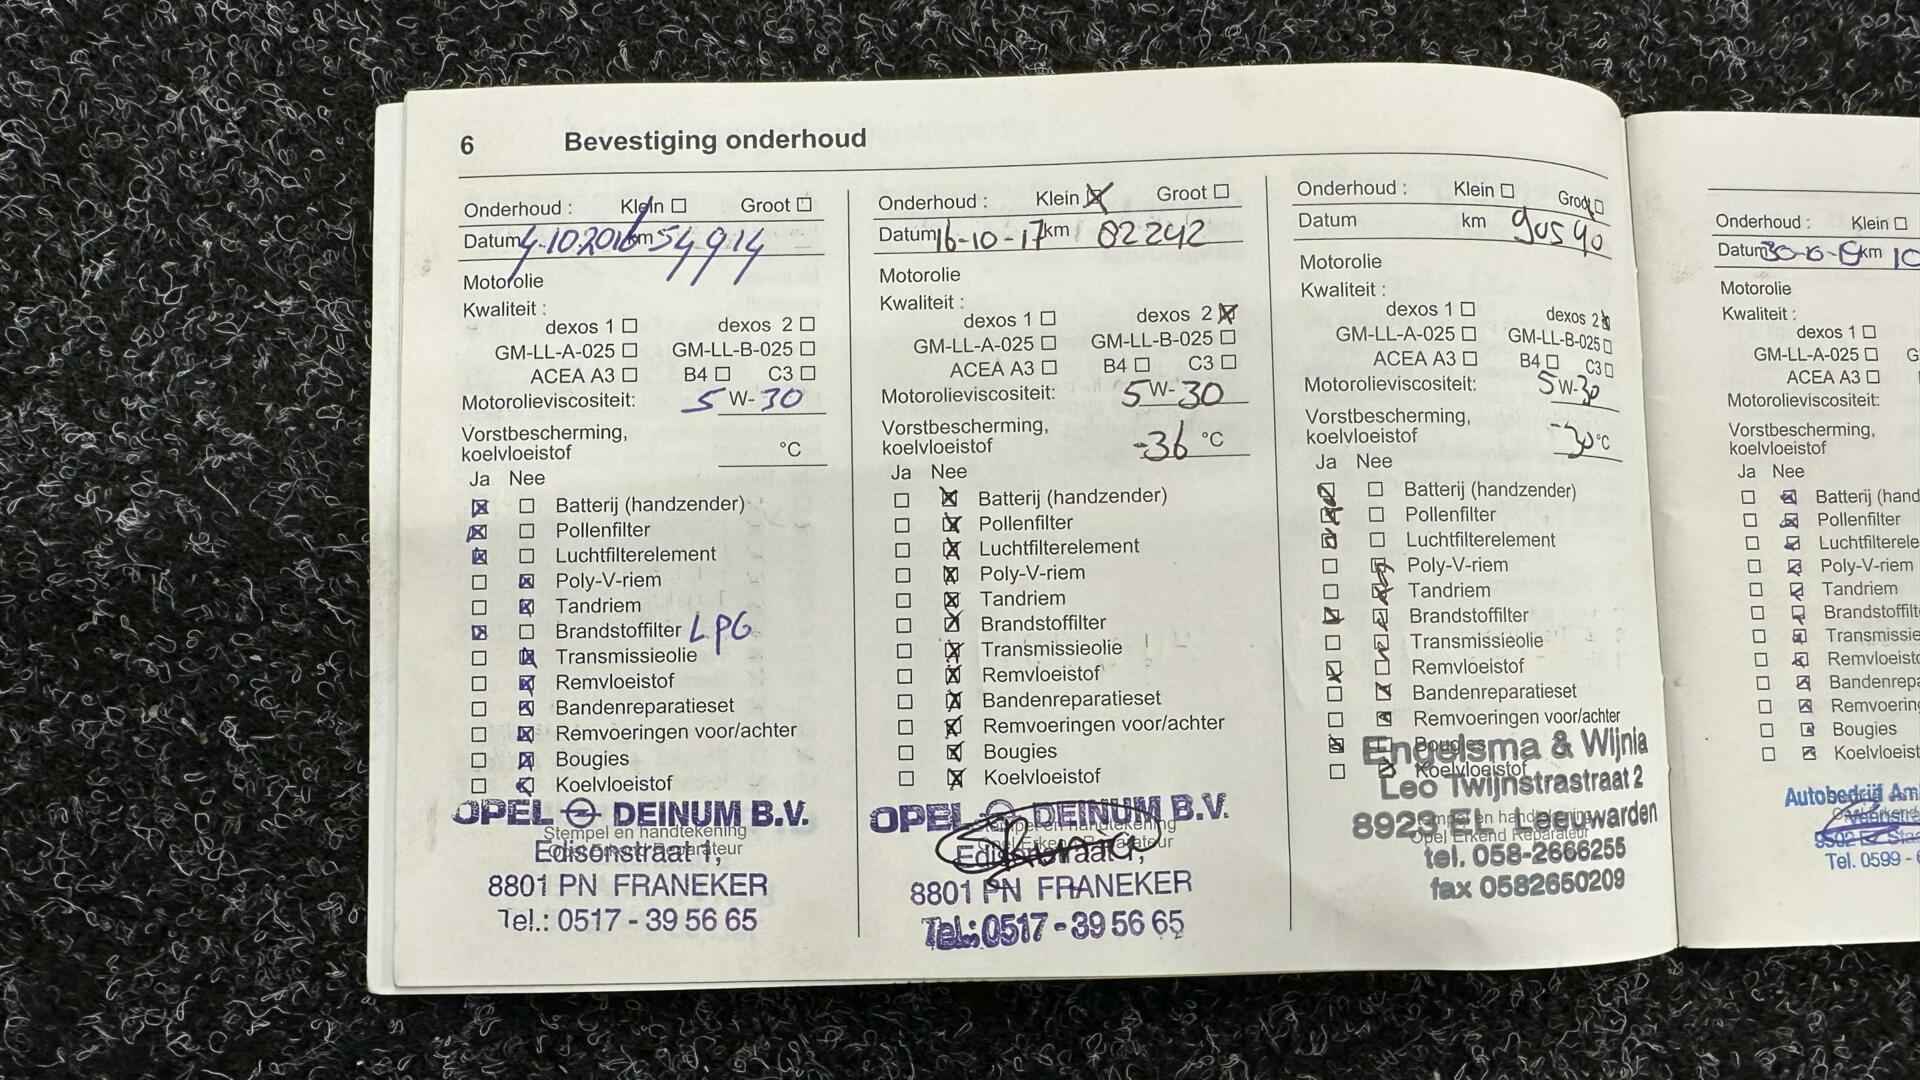 6 Bevestiging onderhoud
Onderhoud : Klein Groot
Datum 4-10-2016 km 54914
Motorolie
Kwaliteit :
dexos 1 dexos 2
GM-LL-A-025 GM-LL-B-025
ACEA A3 B4 C3
Motorolieviscositeit: 5 W- 30
Vorstbescherming,
koelvloeistof °C
Ja Nee
Batterij (handzender)
Pollenfilter
Luchtfilterelement
Poly-V-riem
Tandriem
Brandstoffilter LPG
Transmissieolie
Remvloeistof
Bandenreparatieset
Remvoeringen voor/achter
Bougies
Koelvloeistof
OPEL DEINUM B.V.
Stempel en handtekening
Opel Erkend Reparateur
Edisonstraat 1,
8801 PN FRANEKER
Tel.: 0517 - 39 56 65
Onderhoud : Klein Groot
Datum 16-10-17 km 82242
Motorolie
Kwaliteit :
dexos 1 dexos 2
GM-LL-A-025 GM-LL-B-025
ACEA A3 B4 C3
Motorolieviscositeit: 5 W- 30
Vorstbescherming,
koelvloeistof -36 °C
Ja Nee
Batterij (handzender)
Pollenfilter
Luchtfilterelement
Poly-V-riem
Tandriem
Brandstoffilter
Transmissieolie
Remvloeistof
Bandenreparatieset
Remvoeringen voor/achter
Bougies
Koelvloeistof
OPEL DEINUM B.V.
Stempel en handtekening
Opel Erkend Reparateur
Edisonstraat 1,
8801 PN FRANEKER
Tel.: 0517 - 39 56 65
Onderhoud : Klein Groot
Datum km 90590
Motorolie
Kwaliteit :
dexos 1 dexos 2
GM-LL-A-025 GM-LL-B-025
ACEA A3 B4 C3
Motorolieviscositeit: 5 W-30
Vorstbescherming,
koelvloeistof -30 °C
Ja Nee
Batterij (handzender)
Pollenfilter
Luchtfilterelement
Poly-V-riem
Tandriem
Brandstoffilter
Transmissieolie
Remvloeistof
Bandenreparatieset
Remvoeringen voor/achter
Bougies
Koelvloeistof
Engelsma & Wijnia
Leo Twijnstrastraat 2
8923 EL Leeuwarden
Stempel en handtekening
Opel Erkend Reparateur
tel. 058-2666255
fax 0582650209
Onderhoud : Klein
Datum km 10
Motorolie
Kwaliteit :
dexos 1
GM-LL-A-025 G
ACEA A3
Motorolieviscositeit:
Vorstbescherming,
koelvloeistof
Ja Nee
Batterij (hand
Pollenfilter
Luchtfiltere
Poly-V-riem
Tandriem
Brandstoffilt
Transmissie
Remvloeisto
Bandenrepa
Remvoering
Bougies
Koelvloeist
Autobedrijf Am
Tel. 0599 - 6